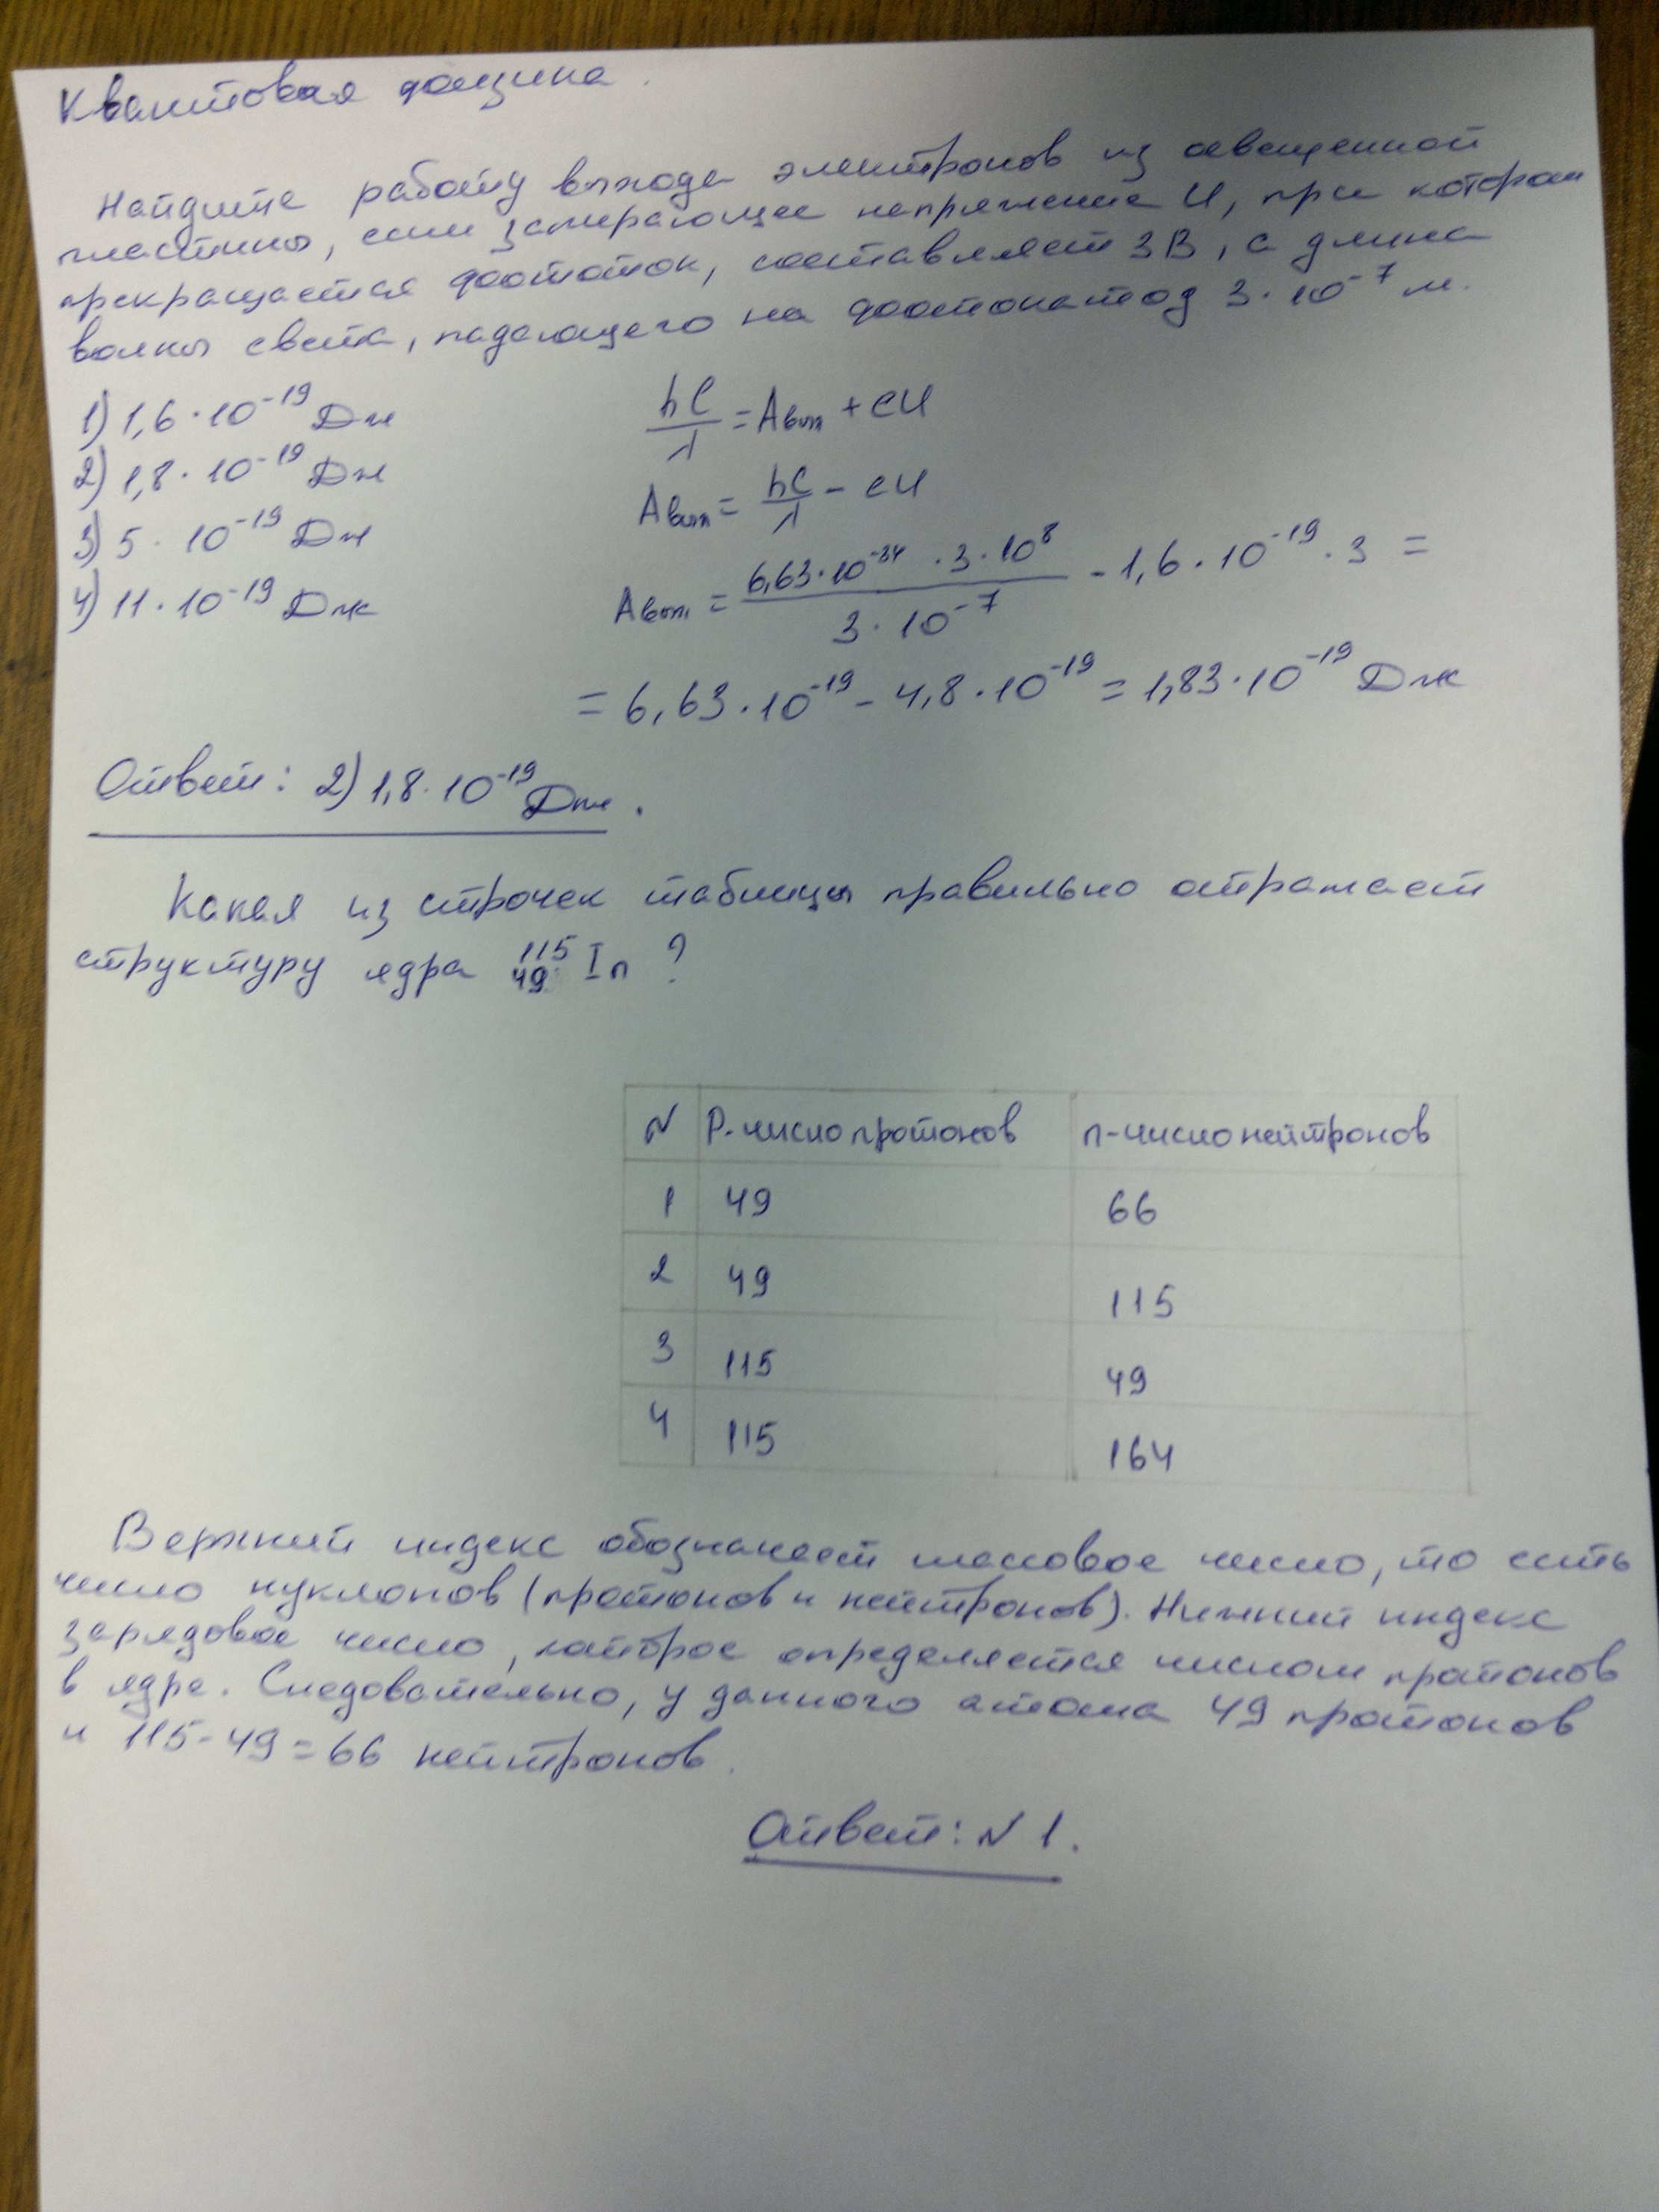 Квантовая физика.
Найдите работу выхода электронов из освещенной
пластины, если запирающее напряжение U, при котором
прекращается фототок, составляет 3В, а длина
волны света, падающего на фотокатод 3·10⁻⁷ м.
1) 1,6·10⁻¹⁹ Дж
2) 1,8·10⁻¹⁹ Дж
3) 5·10⁻¹⁹ Дж
4) 11·10⁻¹⁹ Дж
hc/λ = Aвых + eU
Aвых = hc/λ - eU
Aвых = 6,63·10⁻³⁴·3·10⁸ / 3·10⁻⁷ - 1,6·10⁻¹⁹·3 =
= 6,63·10⁻¹⁹ - 4,8·10⁻¹⁹ = 1,83·10⁻¹⁹ Дж
Ответ: 2) 1,8·10⁻¹⁹ Дж.
Какая из строчек таблицы правильно отражает
структуру ядра ¹¹⁵₄₉In ?
N P-число протонов n-число нейтронов
1 49 66
2 49 115
3 115 49
4 115 164
Верхний индекс обозначает массовое число, то есть
число нуклонов (протонов и нейтронов). Нижний индекс
зарядовое число, которое определяется числом протонов
в ядре. Следовательно, у данного атома 49 протонов
и 115-49=66 нейтронов.
Ответ: N 1.